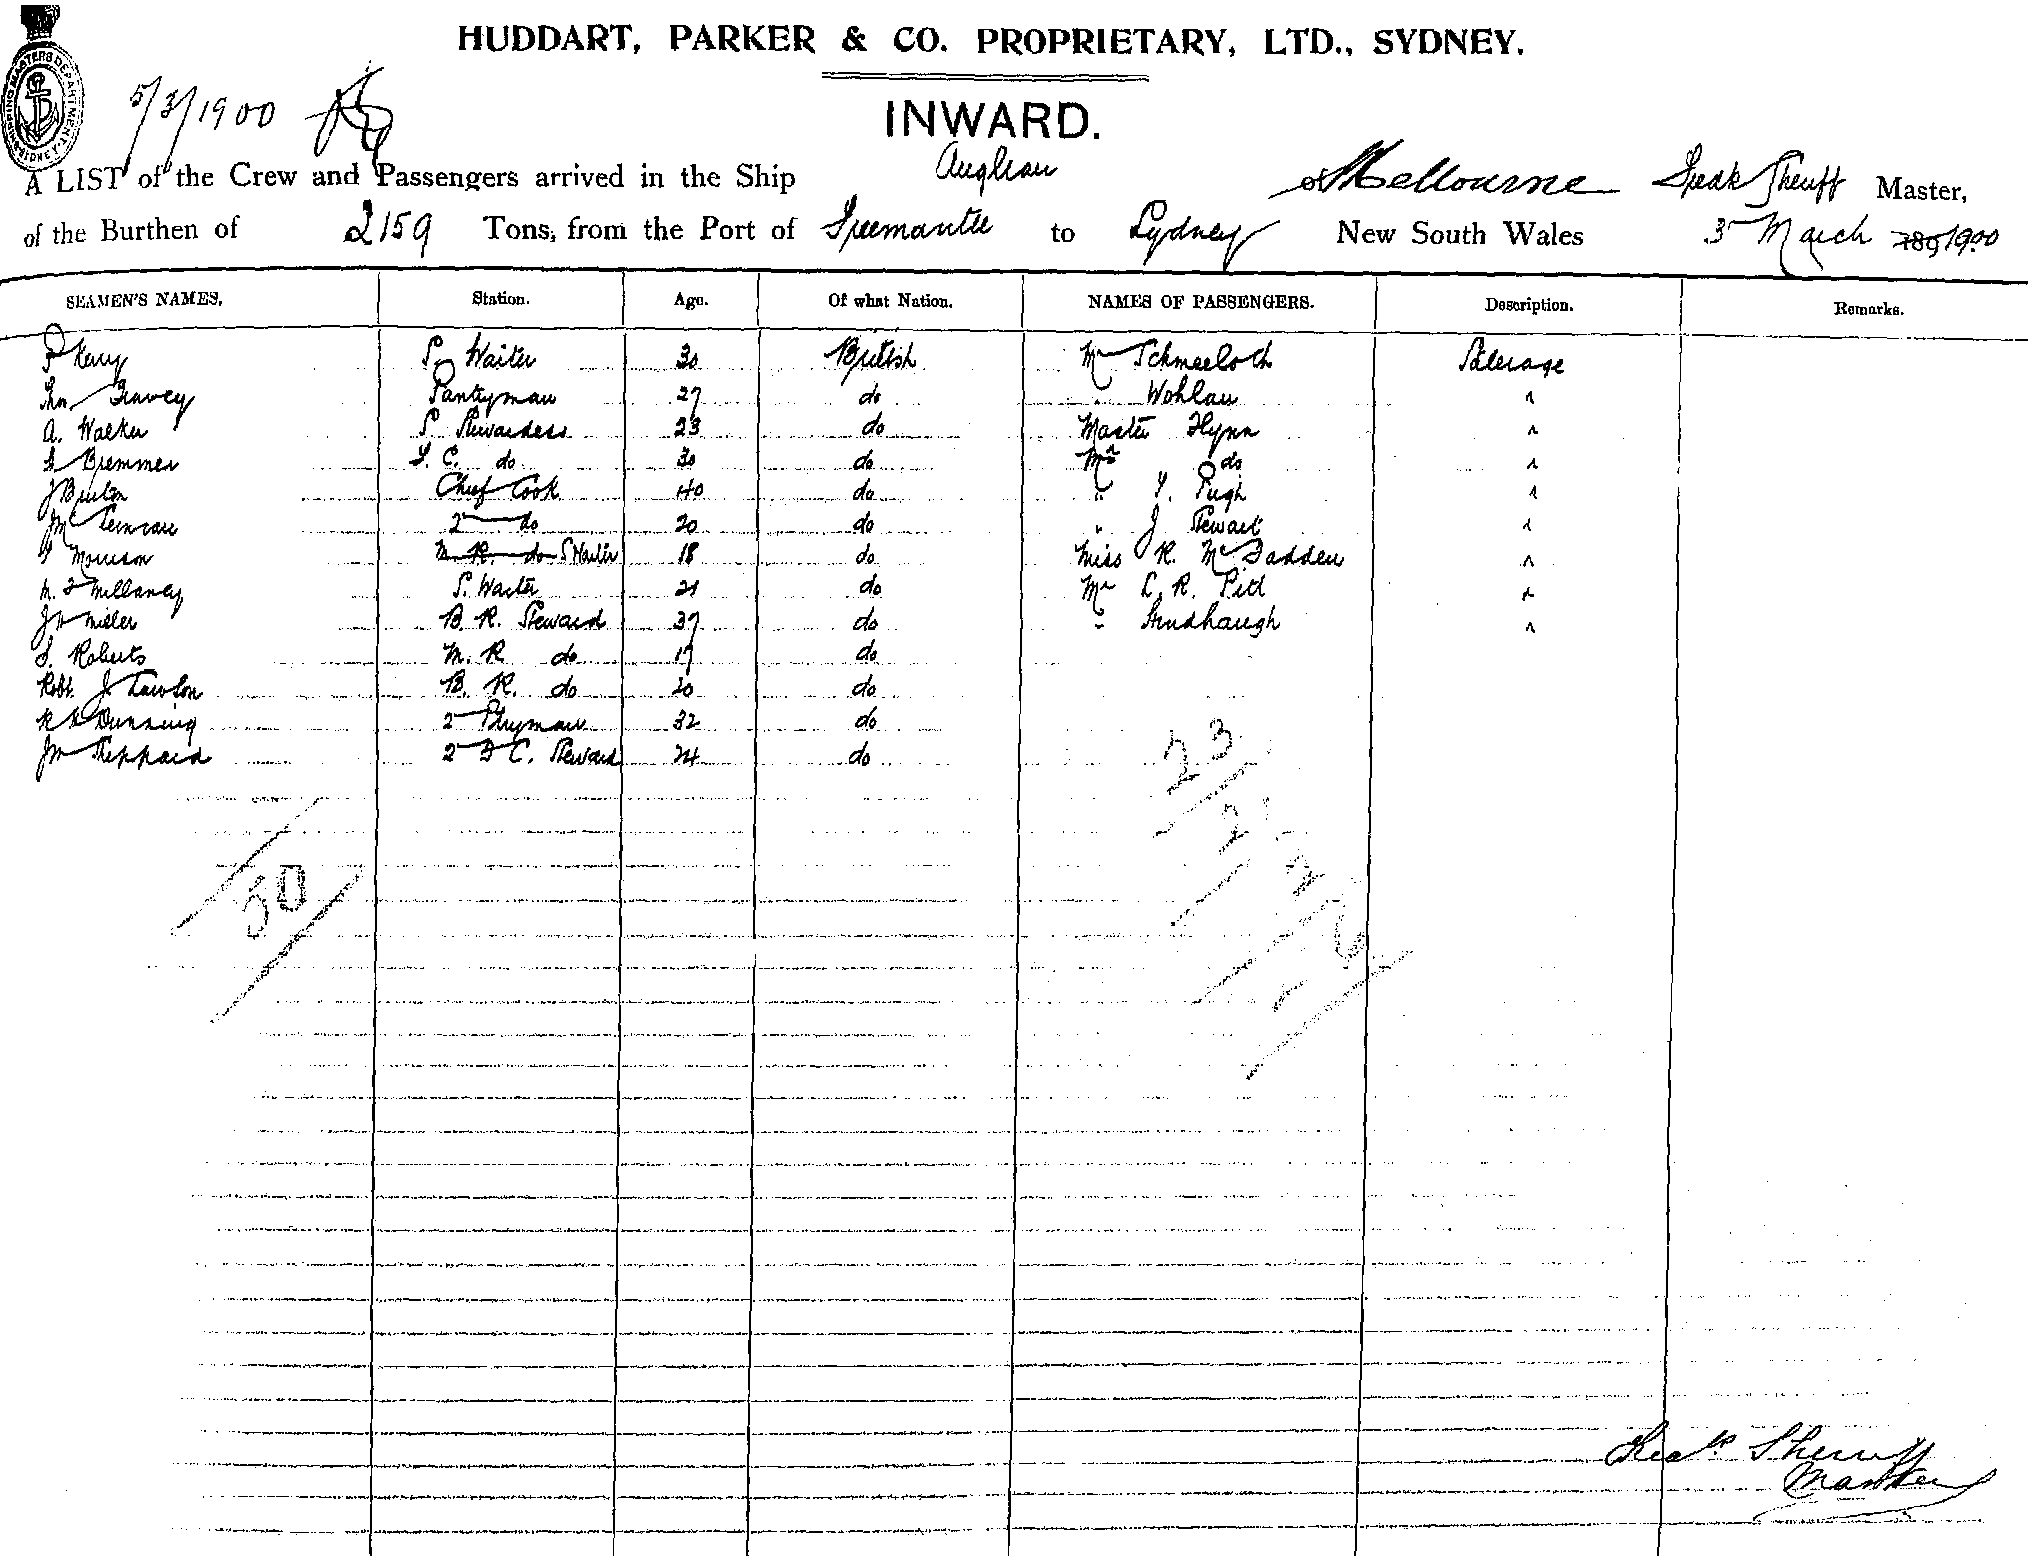 HUDDART, PARKER & CO. PROPRIETARY, LTD., SYDNEY.
INWARD.
5/3/1900
SHIPPING MASTERS DEPARTMENT. SYDNEY
A LIST of the Crew and Passengers arrived in the Ship Anglian of Melbourne Master,
of the Burthen of 2159 Tons, from the Port of Freemantle to Sydney New South Wales 5 March 189 1900
SEAMEN'S NAMES. Station. Age. Of what Nation. NAMES OF PASSENGERS. Description. Remarks.
Kerry S. Waiter 30 British Mr Schmeeloth Steerage
Thos Pantryman 27 do " Wohlau "
A. Walker S Stewardess 23 do Master Flynn "
Bremner S. C. do 30 do Mrs do "
J Burton Chief Cook 40 do " Y. Pugh "
2 do 20 do " J Stewart "
Morrison M. R. do S Waiter 18 do Miss R. McFadden "
M. F Millaney S. Waiter 21 do Mr C. R. Pitt "
Jn Miller B. R. Steward 37 do " Studhaugh "
S. Roberts M. R do 19 do
Robt J Lawton B. R. do 20 do
R H Dunning 2 Ptryman 32 do
Jn Sheppard 2 F C. Steward 24 do
23
2
50
2
Sherriff
Master